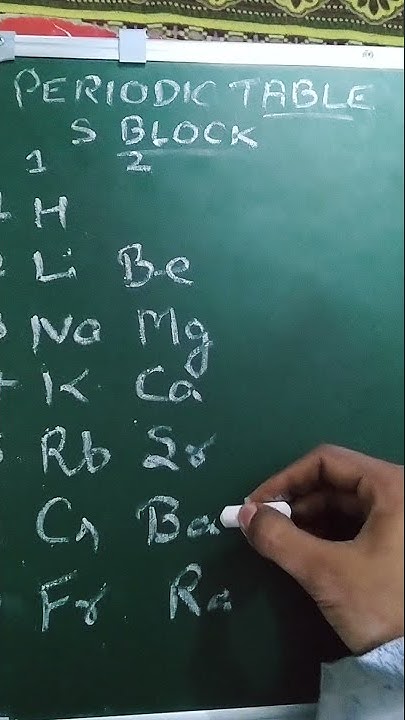 PERIODIC TABLE
S BLOCK
1 2
H
Li Be
Na Mg
K Ca
Rb Sr
Cs Ba
Fr Ra